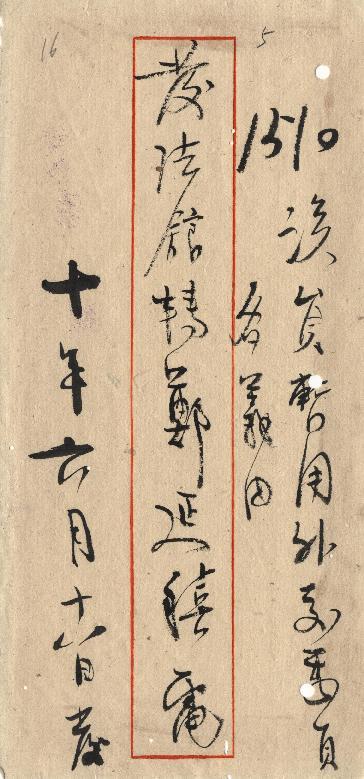 5
16
1510
該員暫用外交專員
名義由
發法館轉鄭延禧電
十年六月十六日發